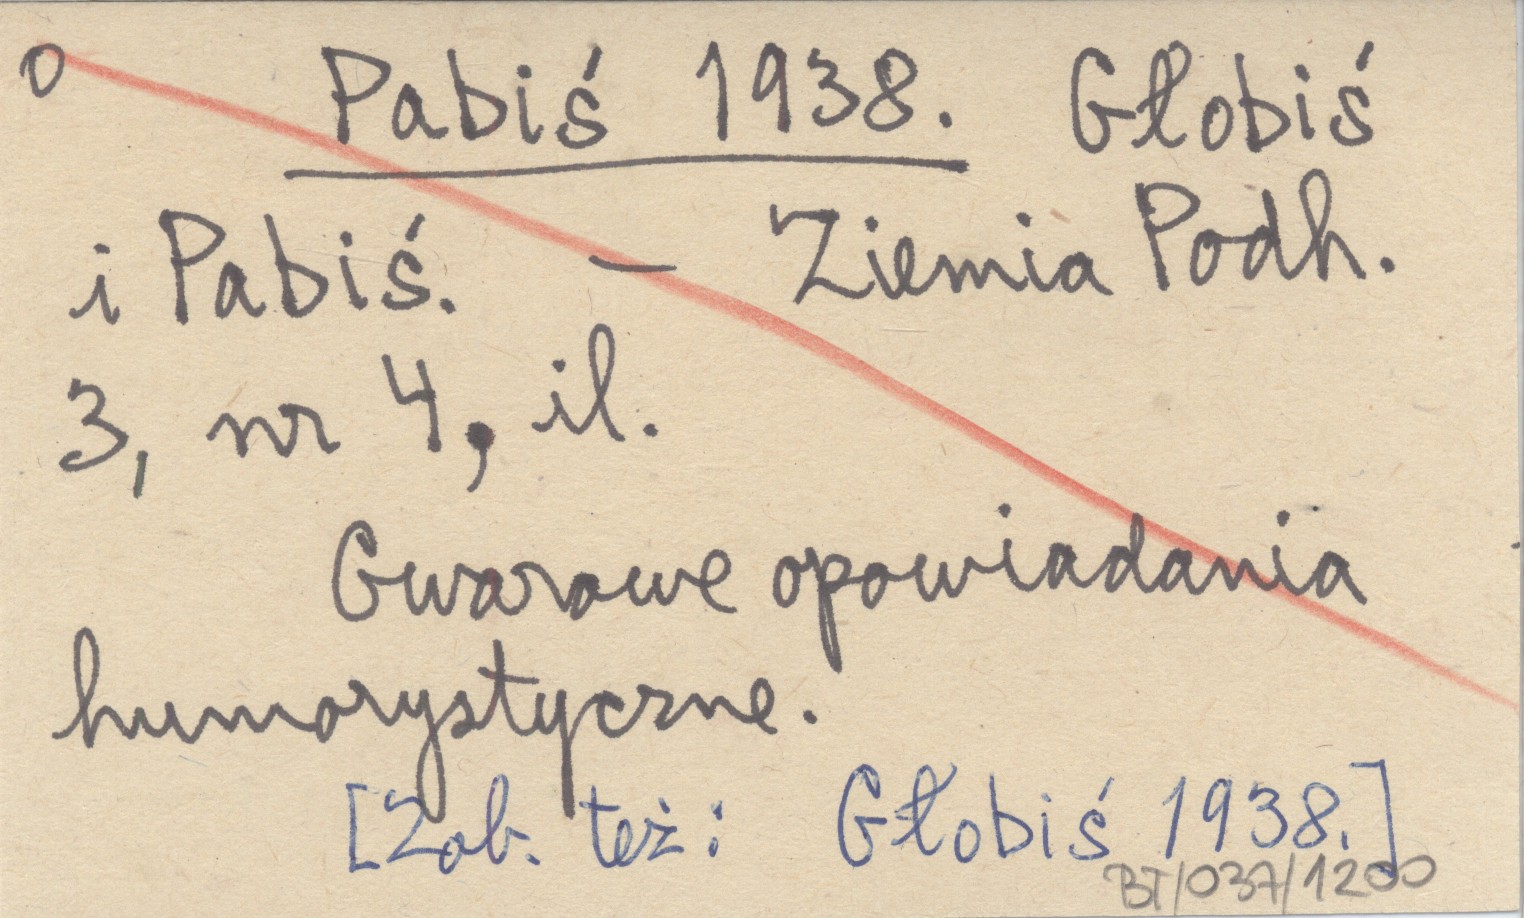 o Pabiś 1938. Głobiś
i Pabiś. — Ziemia Podh.
3, nr 4, il.
Gwarowe opowiadania
humorystyczne.
[Zob. też: Głobiś 1938.]
BT/037/1200